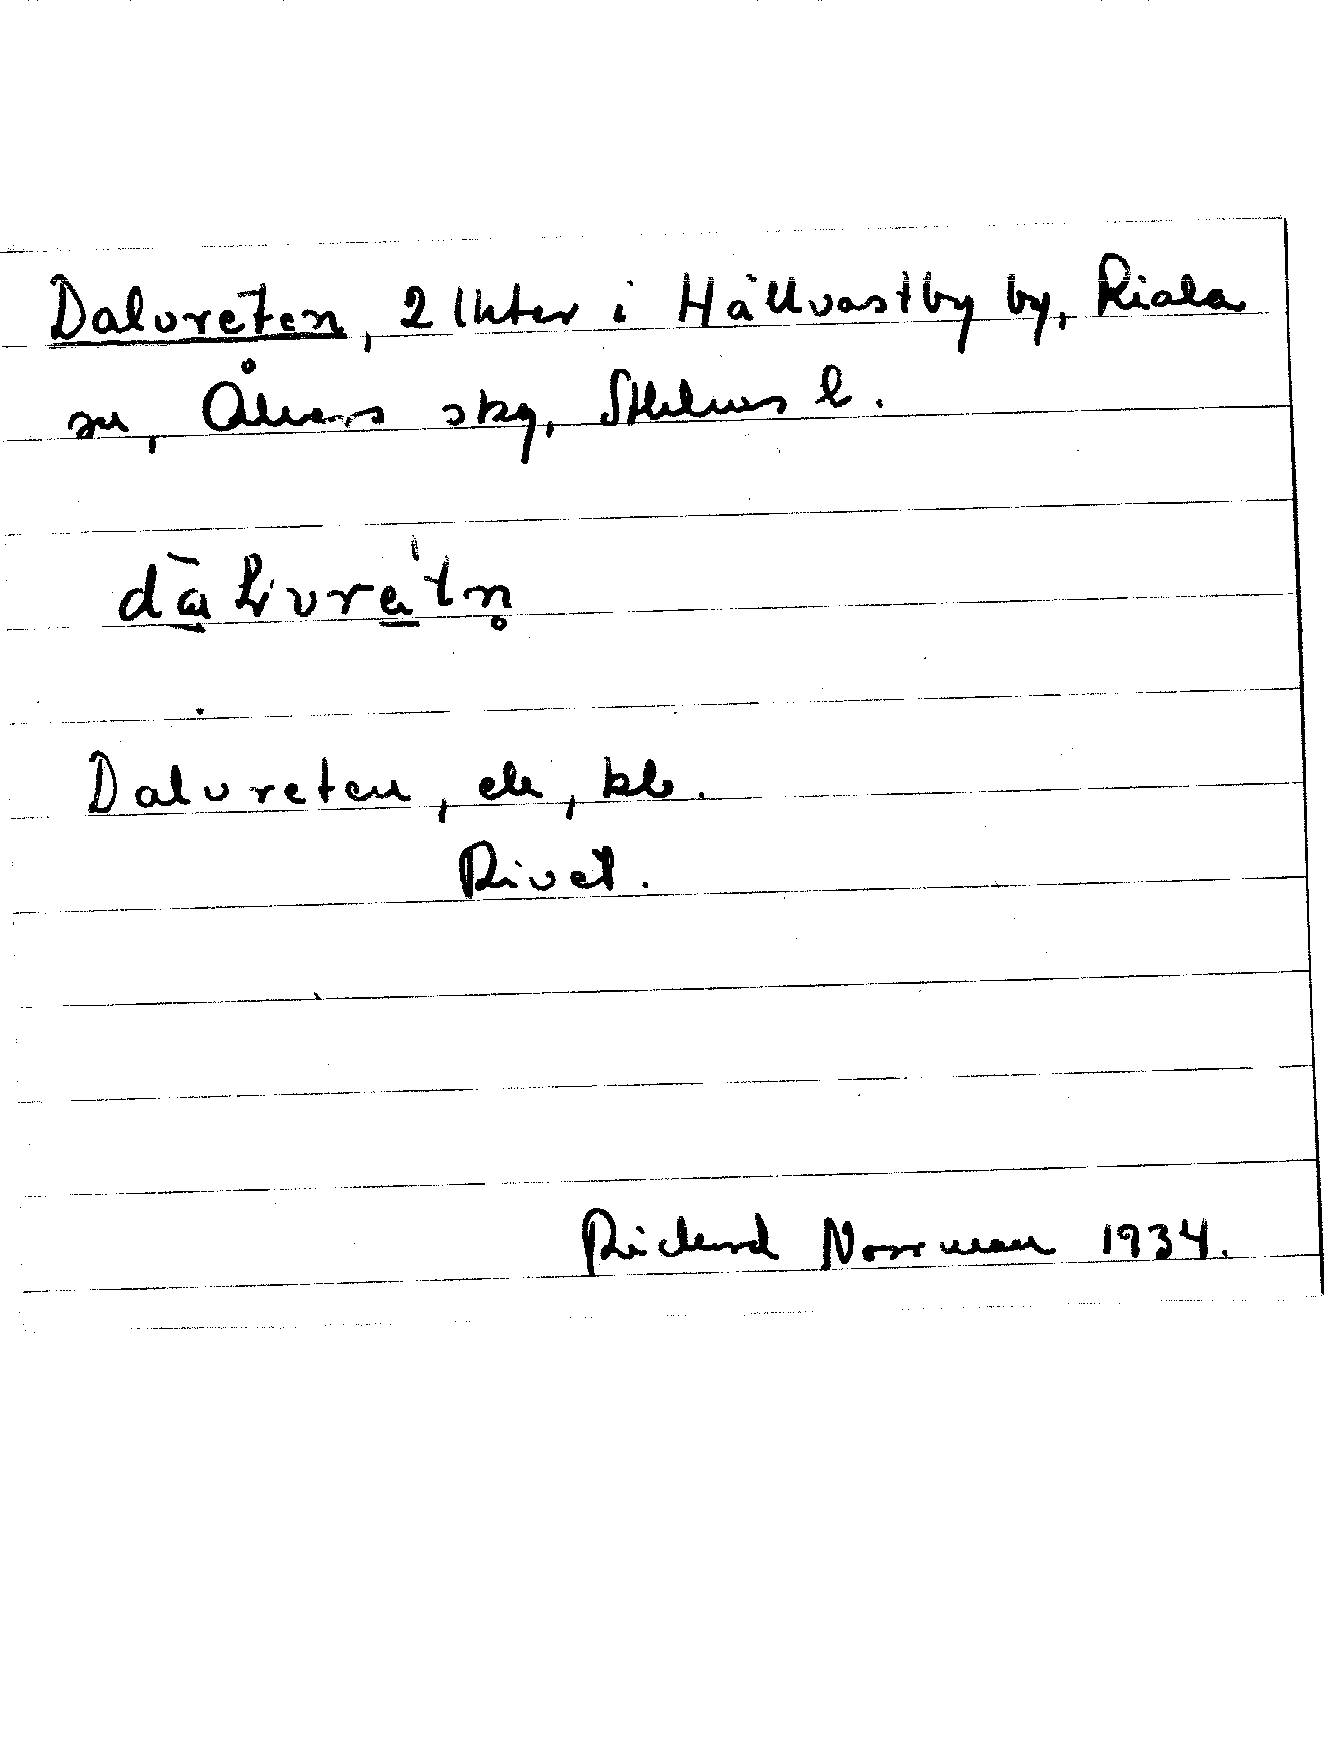 Dalvreten, 2 lhter i Hällvastby by, Riala
sn, Åkers skg, Sthlms l.
Dalvreten, ek, kb.
Rivet.
Richard Norrman 1934.